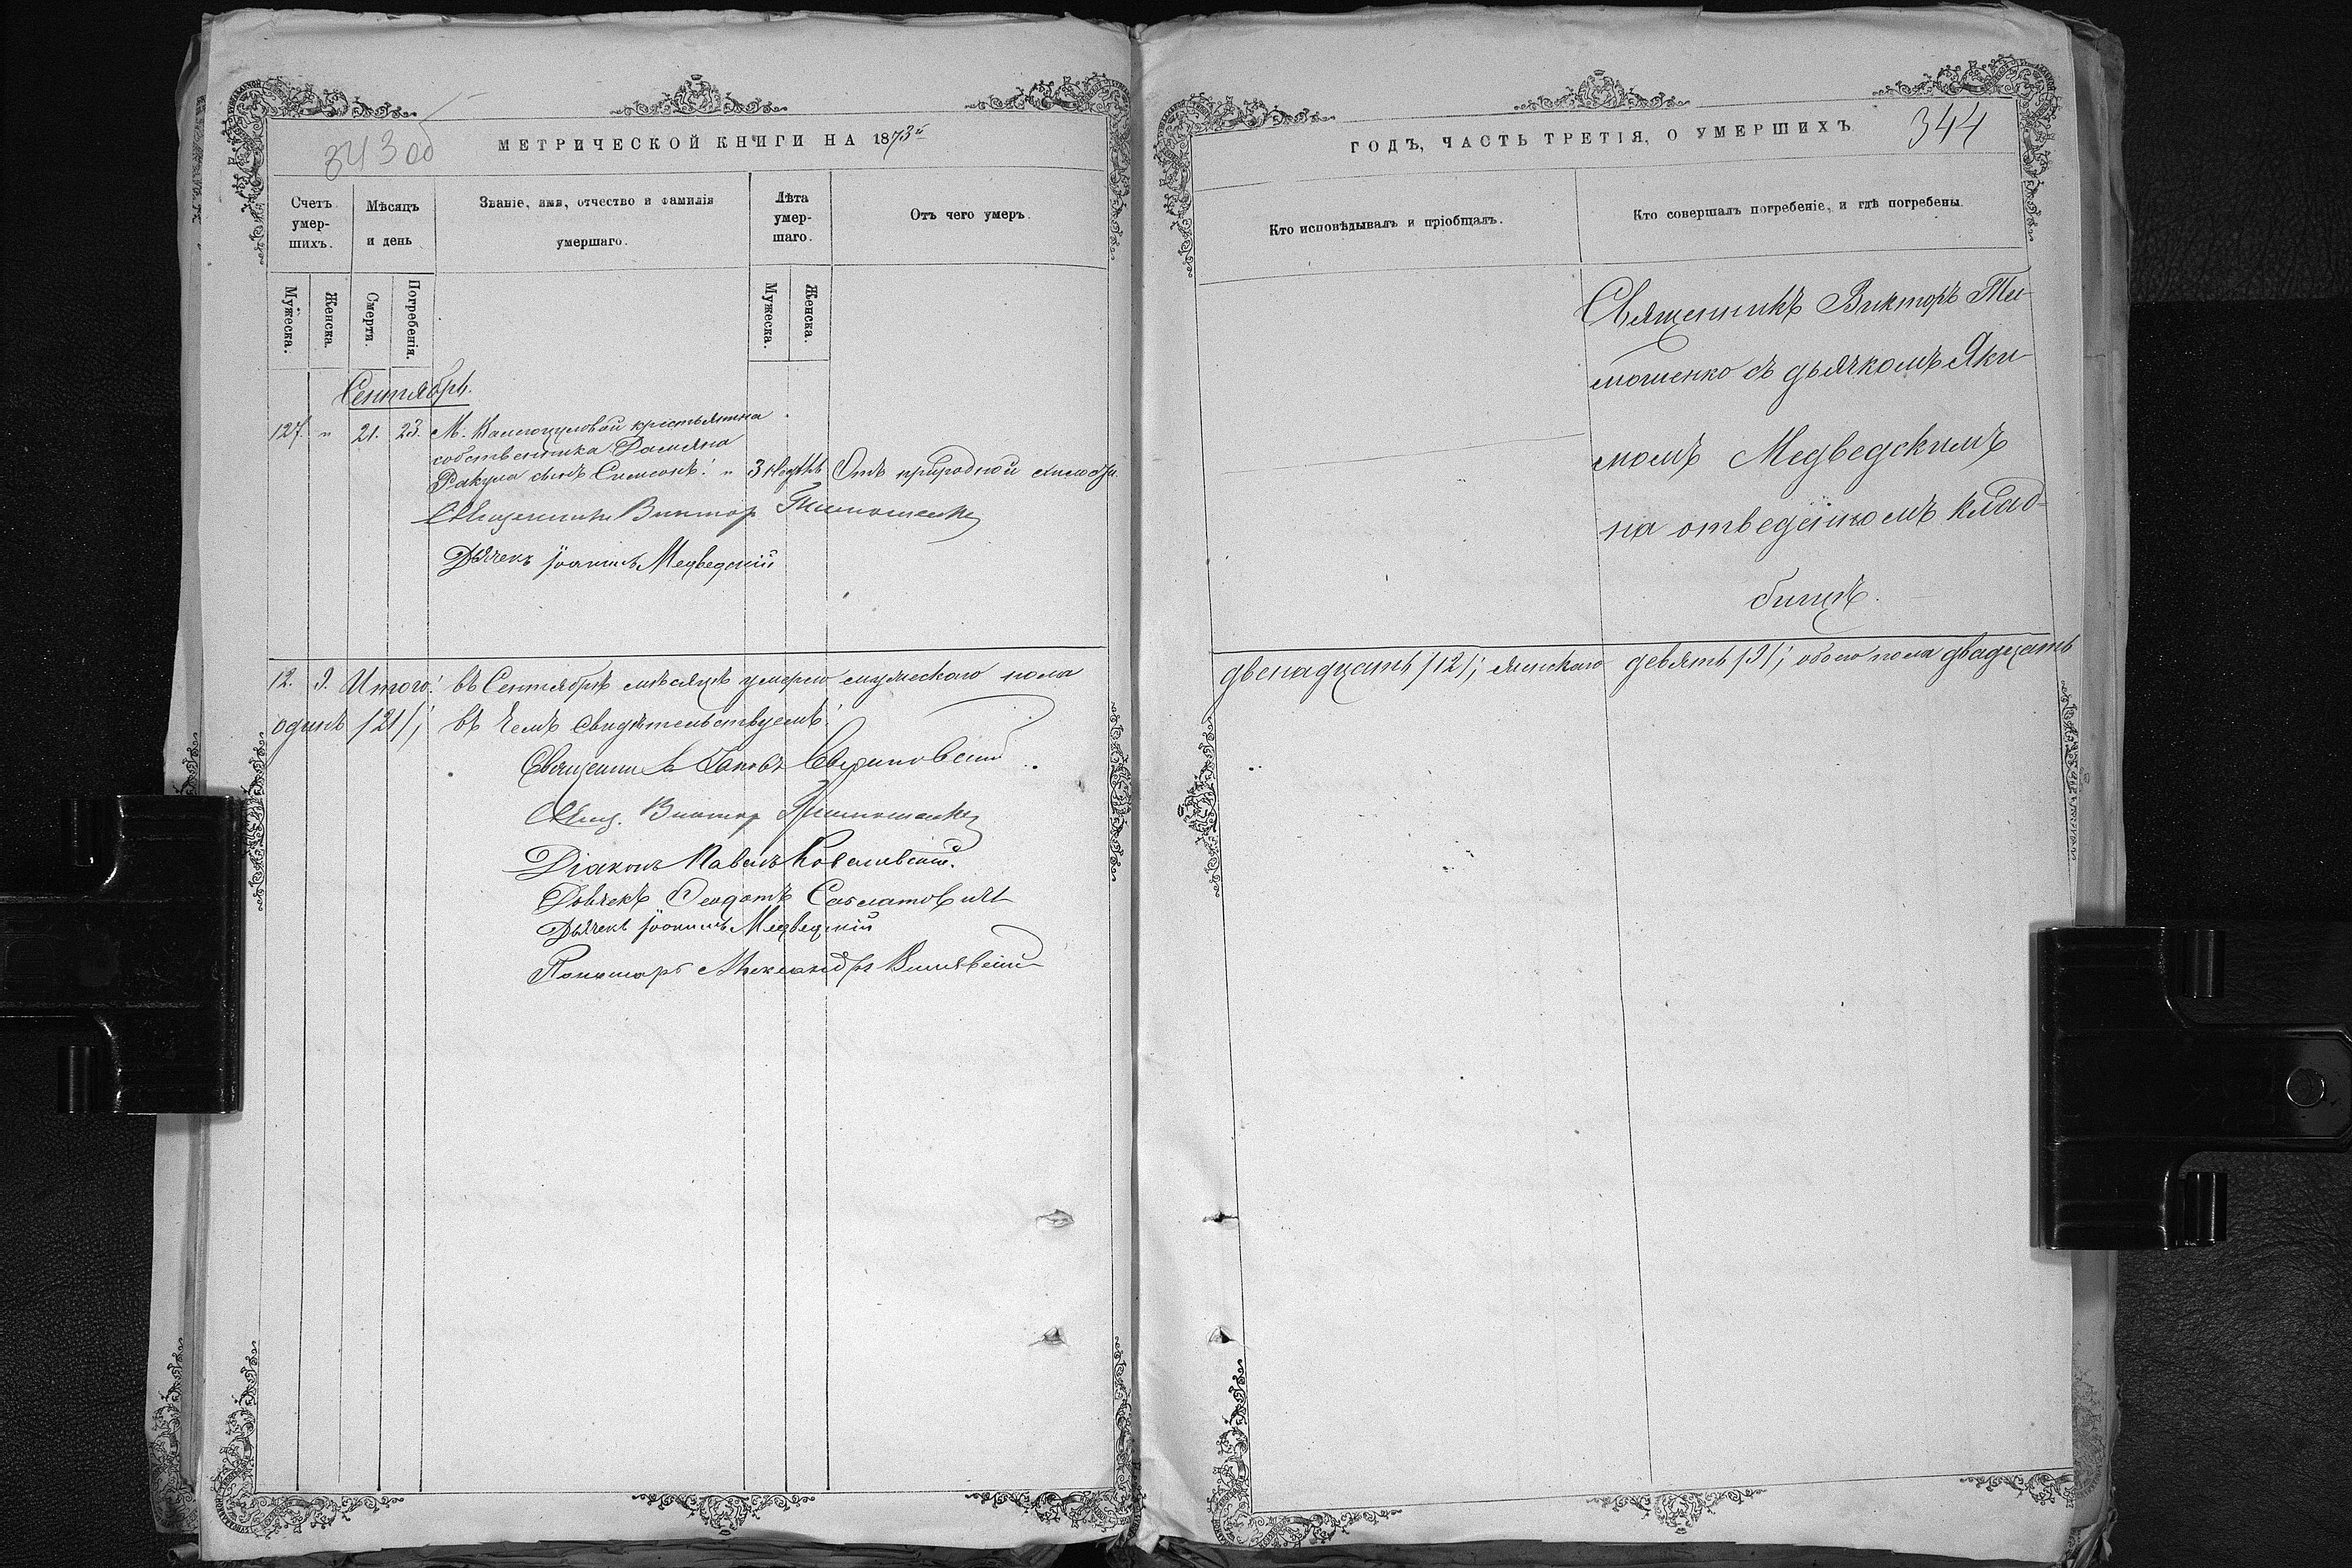 343 об
МЕТРИЧЕСКОЙ КНИГИ НА 1873й
Счетъ умер- шихъ.
Мѣсяцъ и день
Званіе, имя, отчество и фамилія умершаго.
Лѣта умер- шаго.
Отъ чего умеръ.
Мужеска.
Женска.
Смерти.
Погребенія.
Мужеска.
Женска.
Сентябрь.
127. " 21. 23. М. крестьянина
собственника Дамяна
Ракула сынъ Симеонъ. " 3 недѣль Отъ природной слабости
Священникъ Викторъ Тимошенко
Дьячекъ Іоакимъ Медведскій
12. 9. Итого: въ Сентябрѣ мѣсяцѣ умерло мужескаго пола
одинъ /21/; въ чемъ свидѣтельствуемъ:
Священникъ Іаковъ
Свящ. Викторъ Тимошенко
Діаконъ Павелъ Ковалевскій.
Дьячекъ Ѳеодотъ
Дьячекъ Іоакимъ Медведскій
Пономарь Александръ
ГОДЪ, ЧАСТЬ ТРЕТІЯ, О УМЕРШИХЪ
344
Кто исповѣдывалъ и пріобщалъ.
Кто совершалъ погребеніе, и гдѣ погребены.
Священникъ Викторъ Ти-
мошенко съ дьячкомъ Яки-
момъ Медведскимъ
на отведенномъ клад-
бищѣ.
двенадцать /12/; женскаго девять /9/; обоего пола двадцать